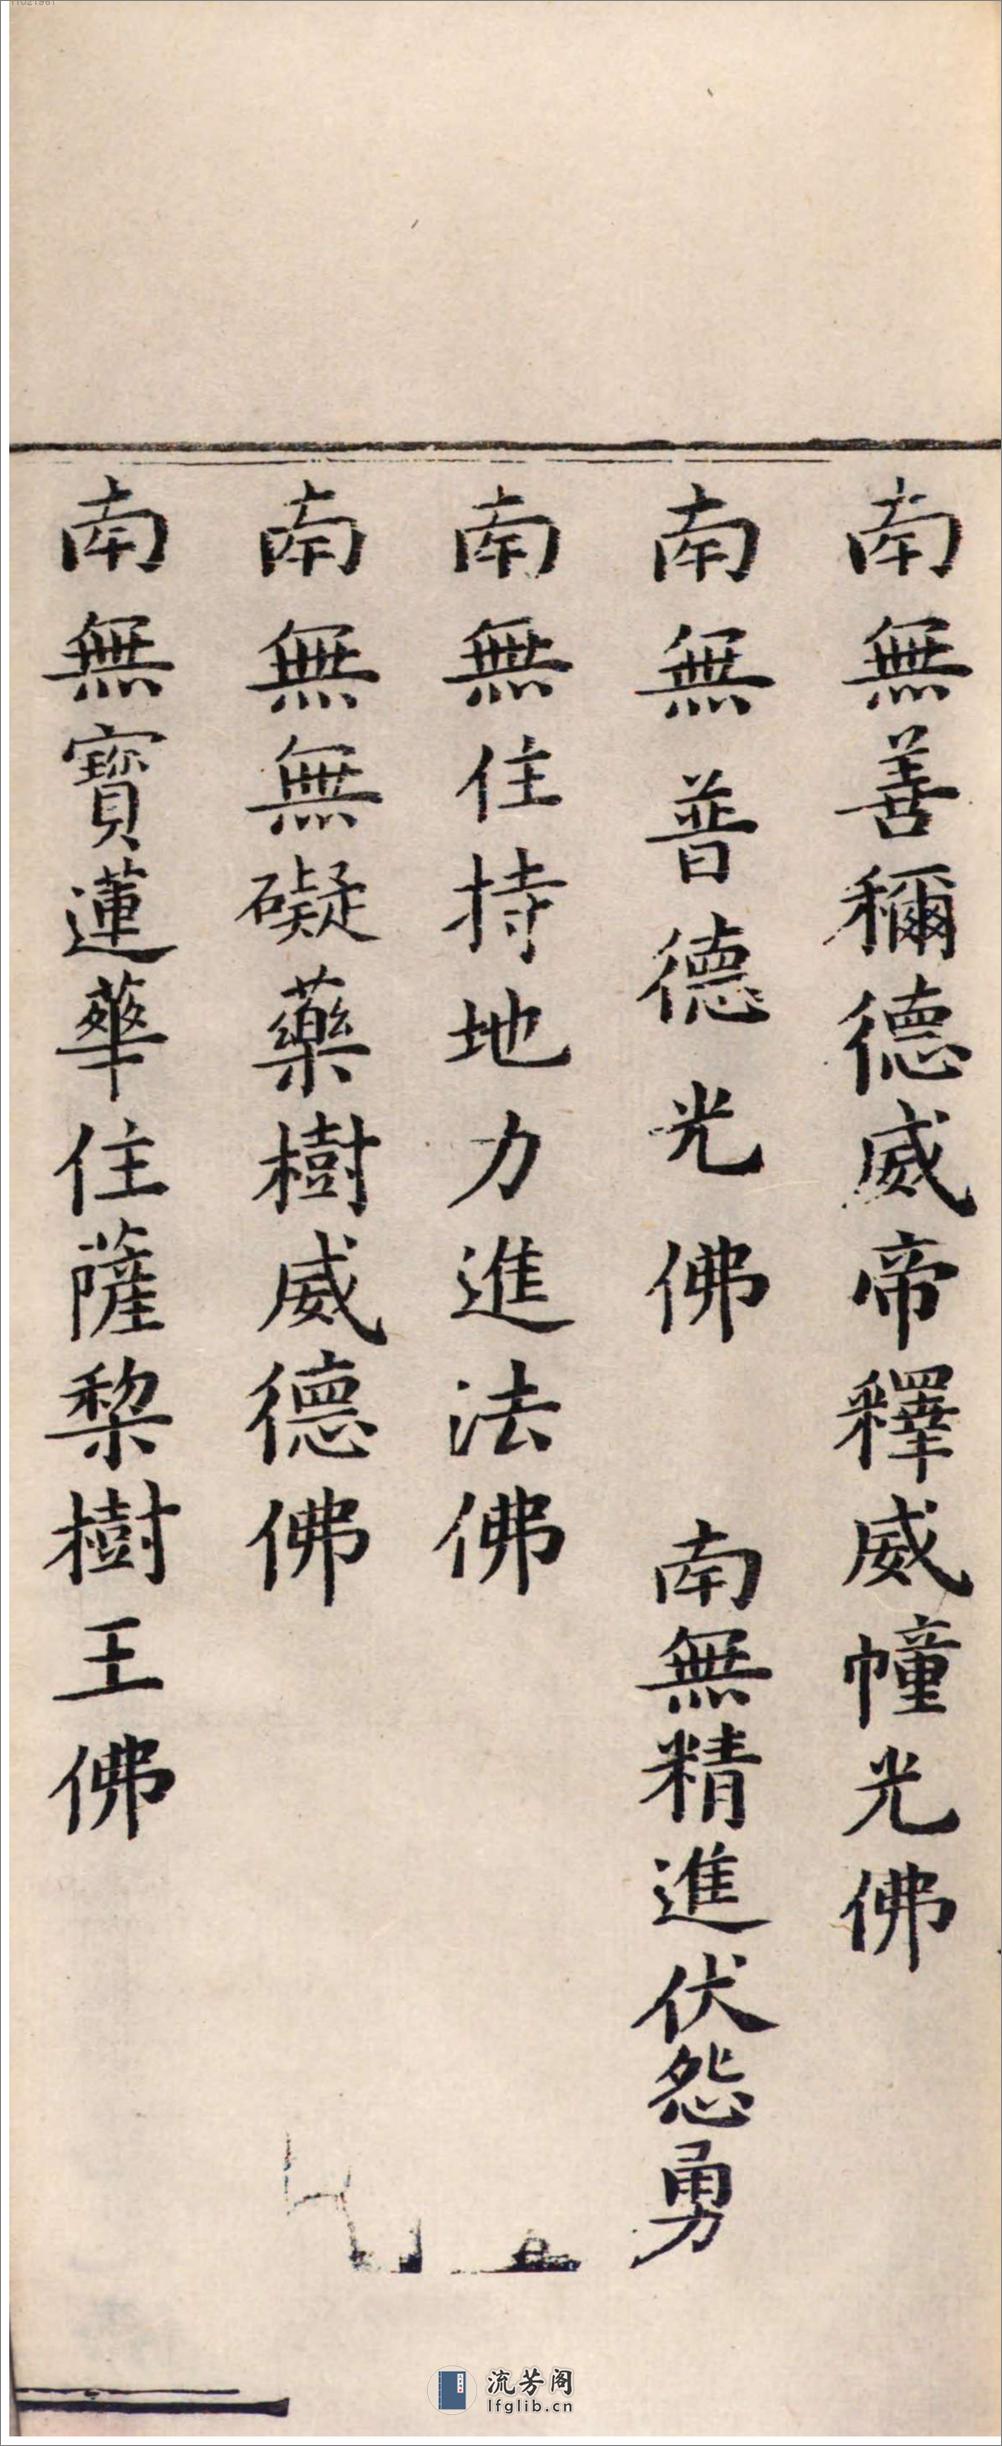 南無善穪德威帝釋威幢光佛
南無普德光佛　南無精進伏怨勇
南無住持地力進法佛
南無無礙藥樹威德佛
南無寶蓮華住薩棃樹王佛
流芳阁
lfglib.cn